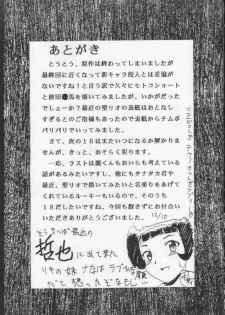 あとがき
とうとう、原作は終わってしまいましたが
最終回に近くなって新キャラ投入とは妥協が
ないですね！と言う訳で久々にモトコショート
と前田●馬を描いてみましたが、いかがだった
でしょーか？最近の聖リオの表紙はおとなし
すぎるとのご指摘もあったので表紙からチムポ
バリバリでいってみました。
さて、次の１８はまたいつになるか解かりませ
んが、きっと、おそらく犯ります。
一応、ラストは闇くんもおいらも考えている
話があるみたいですし、他にもタナタカ君や
最近、聖リオで描いてみたいと名乗りをあげて
くれているルーキーもいるので、まだまだ１８
は続いていきそうですね。今回も飽きずにお付合い
いただきありがとうございました。
12/10
そういえば最近の
哲也に出て来た
リキの妹ナナはラブな